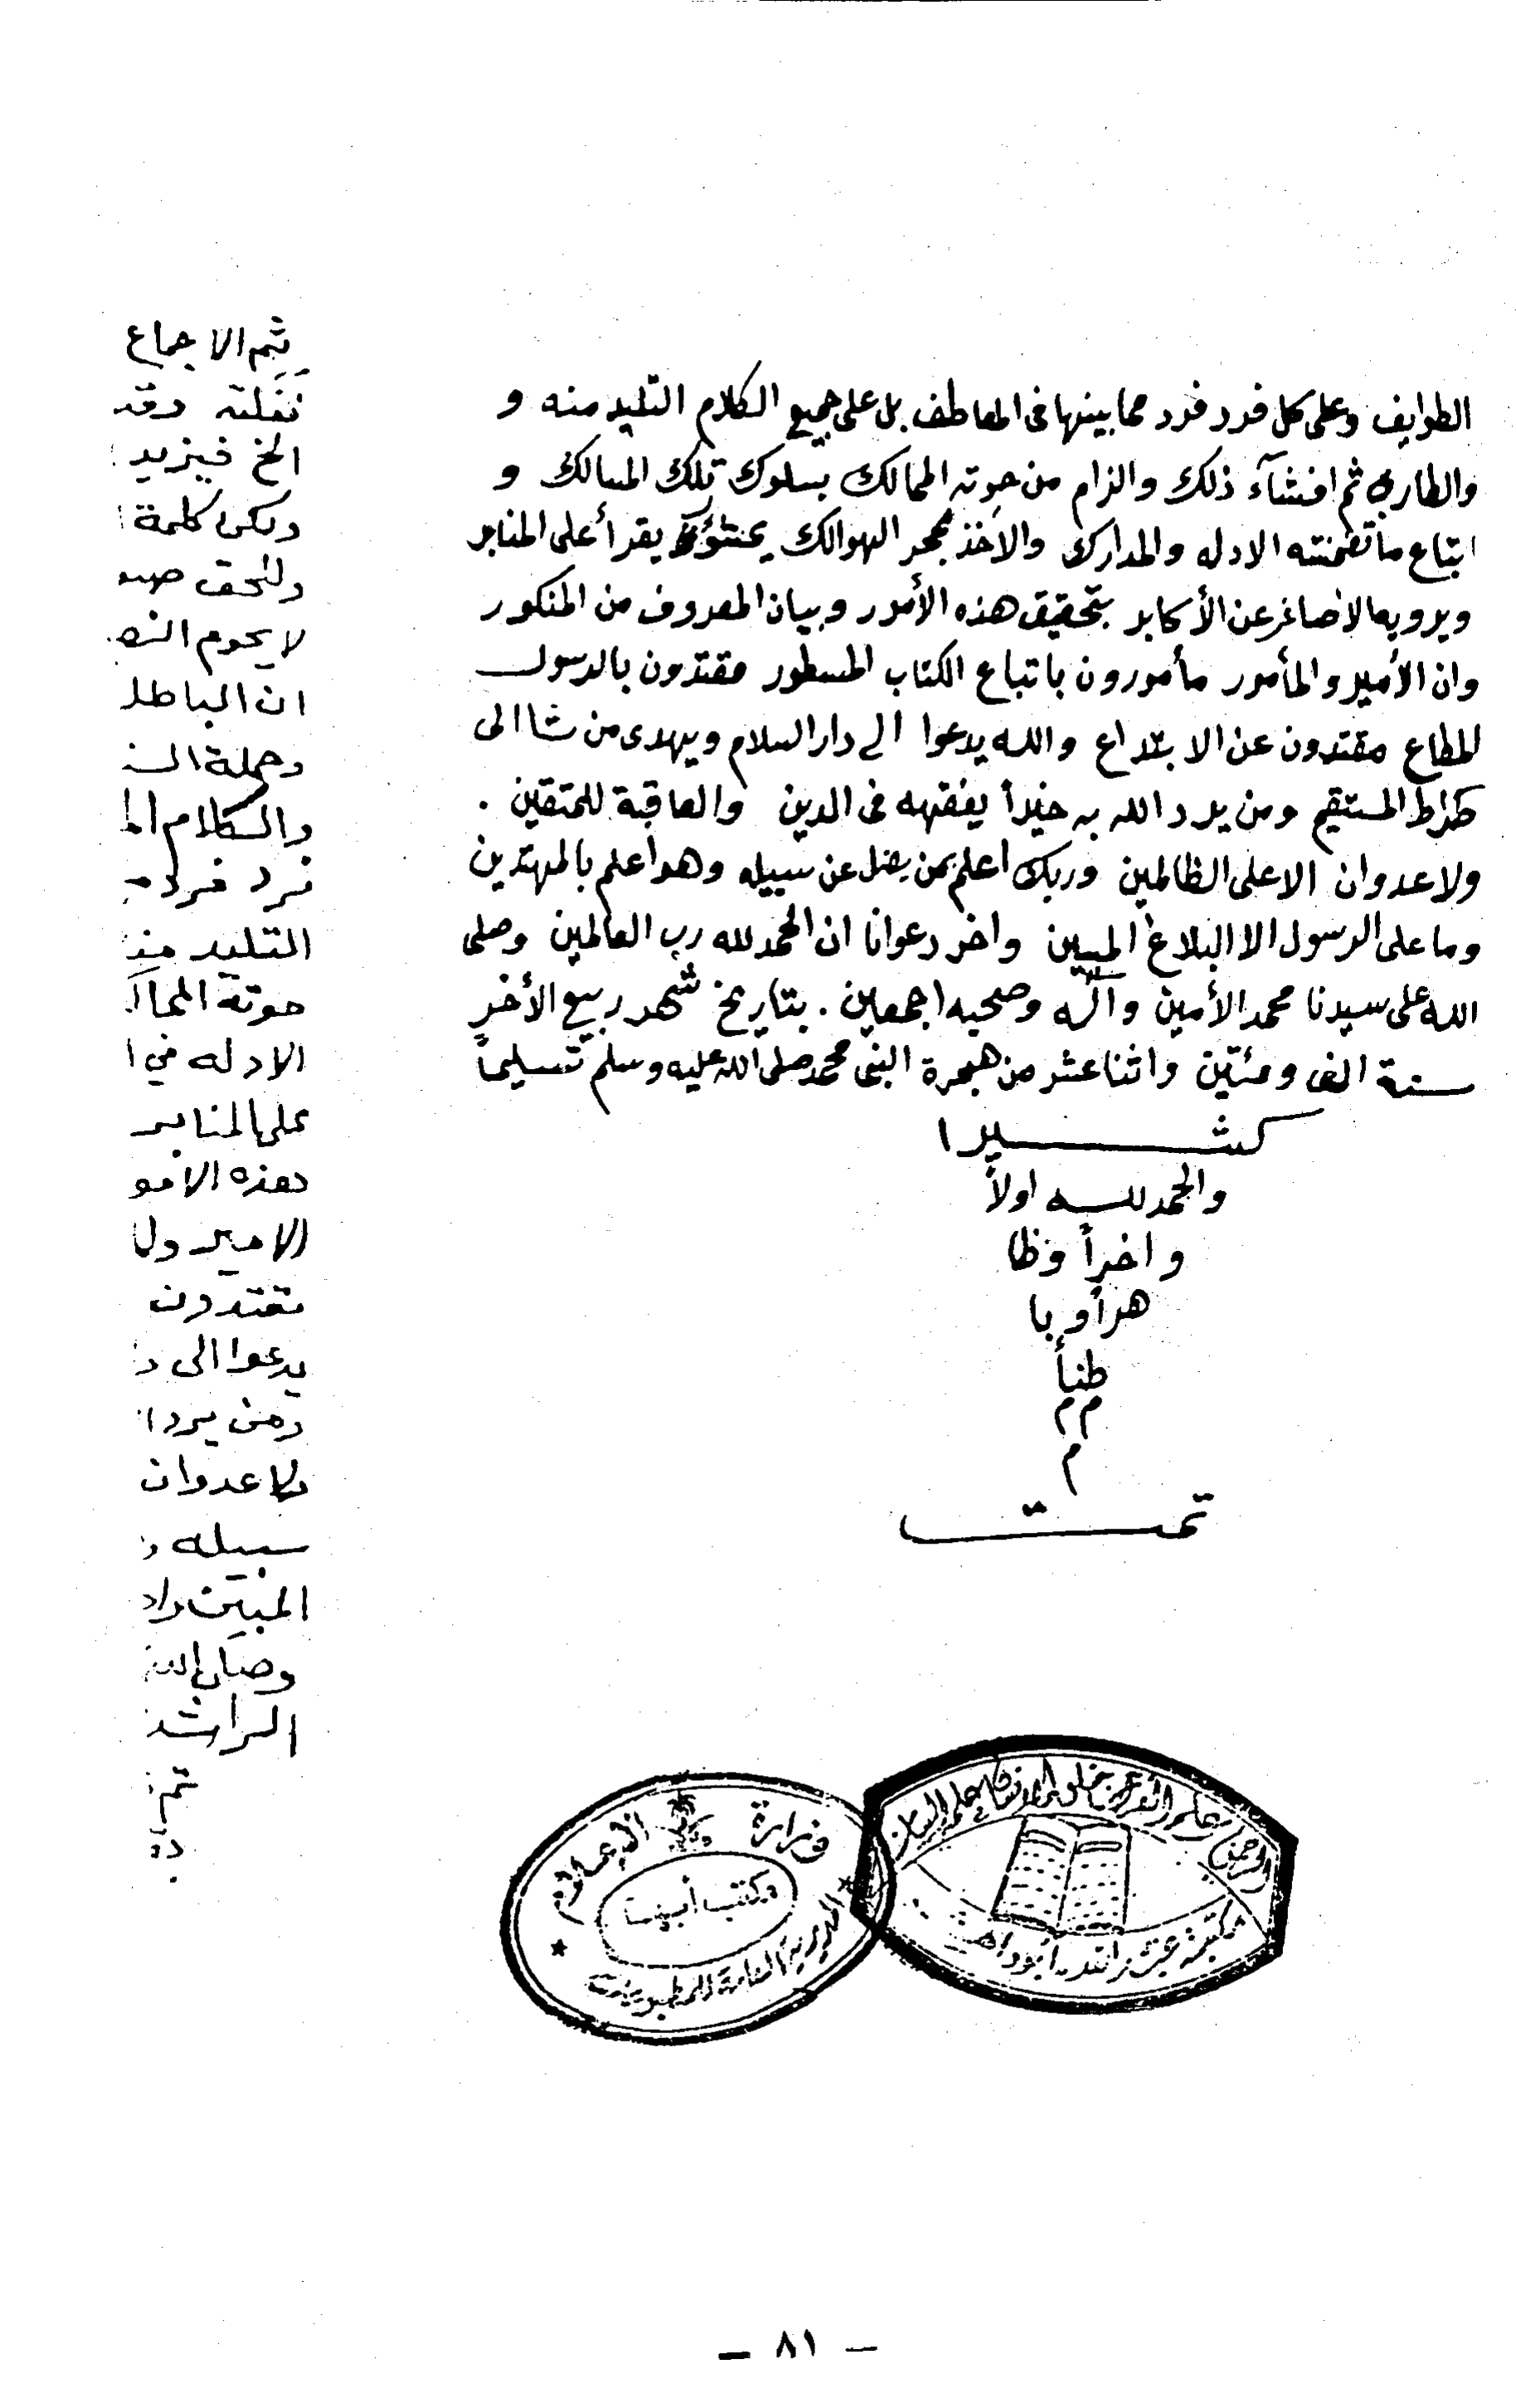 الطوايف وعلى كل فرد فرد مما بينها فى المعاطف بل على جميع الكلام التليد منه و
والطارى ثم افشاآء ذلك والزام من حوته الممالك بسلوك تلك المسالك و
اتباع ما تضمنته الادله والمدارك والاخذ بحجر الهوالك يقرأ على المنابر
ويرويه الاصاغر عن الأكابر بتحقيق هذه الأمور وبيان المعروف من المنكور
وان الأمير والمأمور مأمورون باتباع الكتاب المسطور مقتدون بالرسول
المطاع مقتدون عن الابتداع والله يدعوا الى دار السلام ويهدى من شا الى
صراط المستقيم ومن يرد الله به خيراً يفقهه فى الدين والعاقبة للمتقين .
ولا عدوان الا على الظالمين وربك اعلم بمن يضل عن سبيله وهو اعلم بالمهتدين
وما على الرسول الا البلاغ المبين واخر دعوانا ان الحمد لله رب العالمين وصلى
الله على سيدنا محمد الأمين وآله وصحبه اجمعين . بتاريخ شهر ربيع الأخر
سنة الف ومئتين واثنا عشر من هجرة النبى محمد صلى الله عليه وسلم تسليماً
كثيرا
والحمد لله اولاً
واخراً وظا
هراً وبا
طناً
م م
م
تمت
ثم الاجماع
نقلته وقد
الخ فيزيد
ويكن كلمة ا
وللحق صو
لا يحوم الشـ
ان الباطل
وجملة السـ
والكلام الم
فرد فرد م
التليد منه
حوته المما
الادله في ا
على المنابر
هذه الامو
الامير ولا
مقتدون
يدعوا الى د
ومن يرد ا
ولا عدوان
سبيله و
المبين واخ
وصلى الله
الراشد
تم
وزارة الإعلام
مكتب أبها
المديرية العامة للمطبوعات
الرحمن علم القرآن خلق الإنسان علمه البيان
— ٨١ —